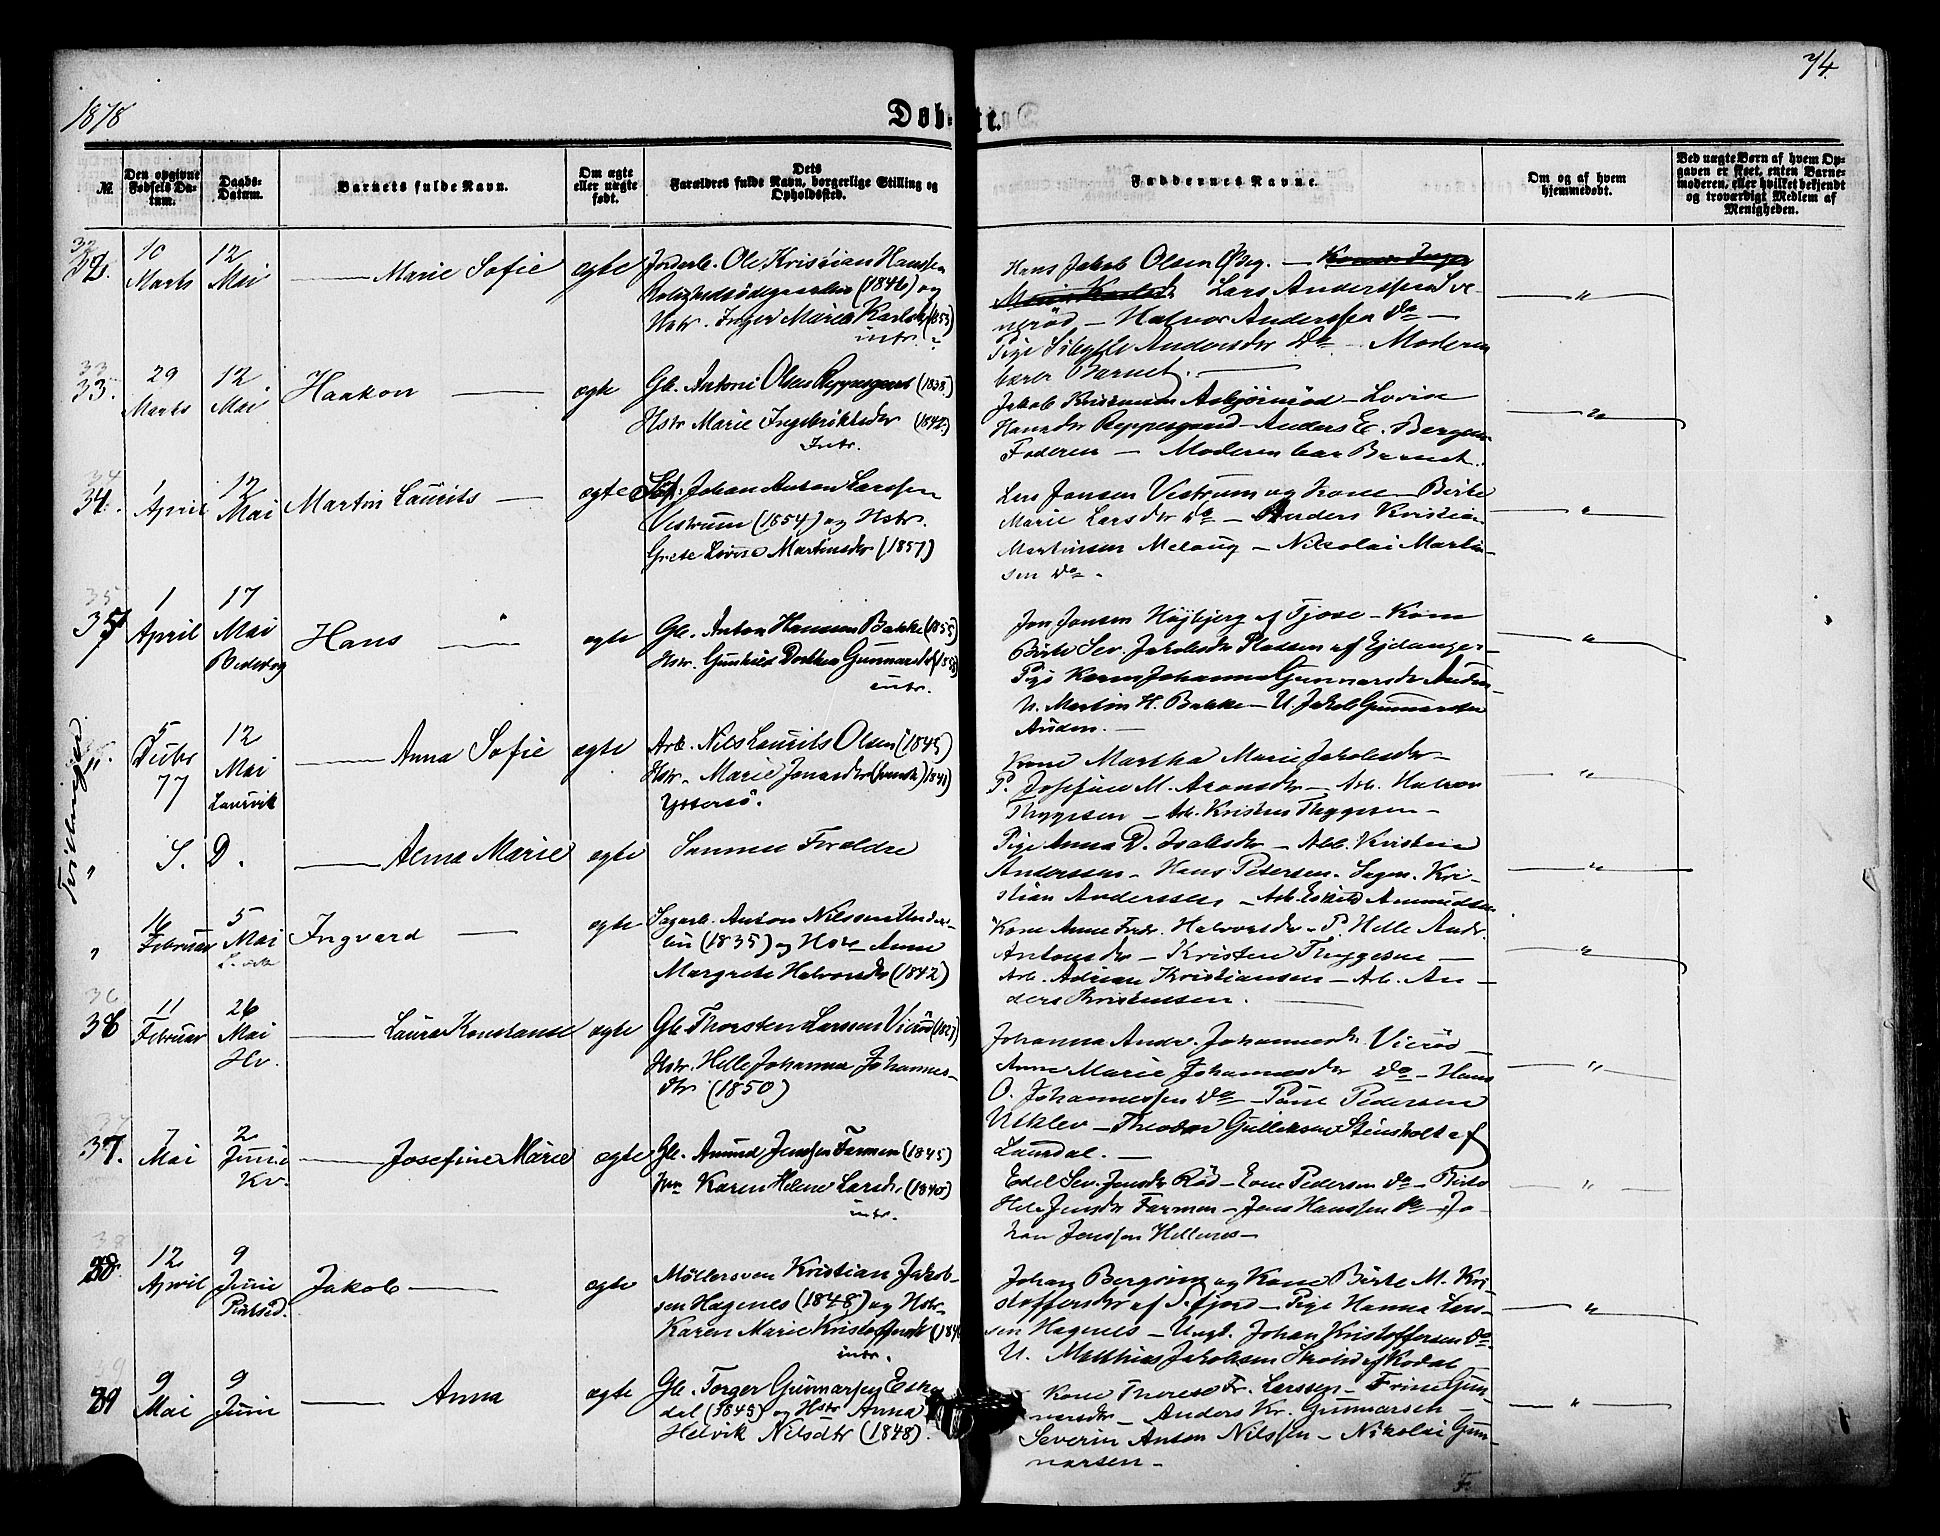 1878
Döbte.
74.
№
Den opgivne Födsels Datum.
Daabs-Datum.
Barnets fulde Navn.
Om ægte eller uægte födt.
Dets Forældres fulde Navn, borgerlige Stilling og Opholdssted.
Faddernes Navne.
Om og af hvem hjemmedöbt.
Ved uægte Börn af hvem Opgaven er skeet, enten Barnemoderen, eller hvilket bekjendt og troværdigt Medlem af Menigheden.
32.
10 Marts
12 Mai
Marie Sofie
ægte
Ole Kristian Hanssen
(1846) og
Hstr. Inger Marie Karlsdr (1853)
intr.
Hans Jakob Olsen Öbg. — Lars Anderssen Sve-
neröd — Halvor Anderssen Do —
Pige Sibylle Andersdr Do — Moderen
bærer Barnet. —
33.
29 Marts
12 Mai
Haakon
ægte
Gb. Antoni Olsen Reppesgaard (1838)
Hstr Marie Ingebriktsdr (1842)
Intr.
Jakob Kristensen Asbjörnröd — Lovise
Hansdr Reppesgaard — Anders E. Bergan
Faderen — Moderen bar Barnet.
34.
1 April
12 Mai
Martin Laurits
ægte
Johan Anton Larssen
Vestrum (1854) og Hstr.
Grete Lovise Martinsdr (1857)
Lars Jonsen Vestrum og Kone Birte
Marie Larsdr Do — Anders Kristian
Martinsen Melaug — Nikolai Martin-
sen Do.
35
1 April
17 Mai
Bededag
Hans
ægte
Gb. Anton Hanssen Bakke (1855)
Hstr. Gunhild Dorthea Gunnarsdr (1858)
intr.
Jon Jonsen Höjbjerg af Tjose — Kone
Birte Sev. Jakobsdr Pladsen af Ejdanger —
Pige Karen Johanne Gunnarsdr Auden
U. Martin H. Bakke — U. Jakob Gunnarsen
Auden. —
Tvillinger
5 Decbr 77
12 Mai
Laurvik
Anna Sofie
ægte
Arb. Nils Laurits Olsen (1845)
Hstr. Marie Jonasdr
Yttersö.
Kone Martha Marie Jakobsdr —
P. Josefine M. Aronsdr — Arb. Halvor
Thygesen — Arb. Kristen Thygesen —
"
S. D.
Alma Marie
ægte
Samme Foreldre
Pige Anna D. Isaksdr — Arb. Kristian
Anderssen — Hans Petersen — Kri-
stian Anderssen — Arb. Eskild Amundsen
"
16 Februar
5 Mai
Ingvard
ægte
Sagarb. Anton Nilssen
(1835) og Hstr Anne
Margrete Halvorsdr (1842)
Kone Anne Fredr. Halvorsdr — P. Helle Andr.
Antonsdr — Kristen Thygesen —
Arb. Adrian Kristiansen — Arb. An-
ders Kristensen. —
36
11 Februar
26 Mai
Hv.
Laura Konstanse
ægte
Gb. Thorsten Larssen Viröd
Hstr. Helle Johanne Johannes-
dtr (1850)
Johanna Andr. Johannesdr Viröd —
Anne Marie Johannesdr Do — Hans
O. Johannessen Do — Paul Pedersen
Utklev — Theodor Gulliksen Stensholt af
Laurdal. —
37.
7 Mai
2 Juni
Kv.
Josefine Marie
ægte
Gb. Amund Jenssen Farmen (1845)
Karen Helene Larsdr (1840)
intr.
Edel Sev. Jensdr Röd — Even Pedersen Do — Birte
Hele Jensdr Farmen — Jens Hanssen Do — Jo-
han Jenssen Hellenes —
38.
12 April
9 Juni
Jakob
ægte
Möllersven Kristian Jakob-
sen Hagenes (1848) og Hstr.
Karen Marie Kristoffersdr
intr.
Johan Bergsing og Kone Birte M. Kri-
stoffersdr af S.fjord — Pige Hanna Lars-
sen Hagenes — Ungk. Johan Kristoffersen Do
U. Mathias Jakobsen af Kodal
39
9 Mai
9 Juni
Anna
ægte
Gb. Torger Gunnarsen Eske-
dal (1845) og Hstr Anna
Helvik Nilsdtr (1848).
Kone Therese Fr. Larssen — Trine Gun-
narsdr — Anders Kr. Gunnarsen —
Severin Anton Nilssen — Nikolai Gun-
narsen —
F.